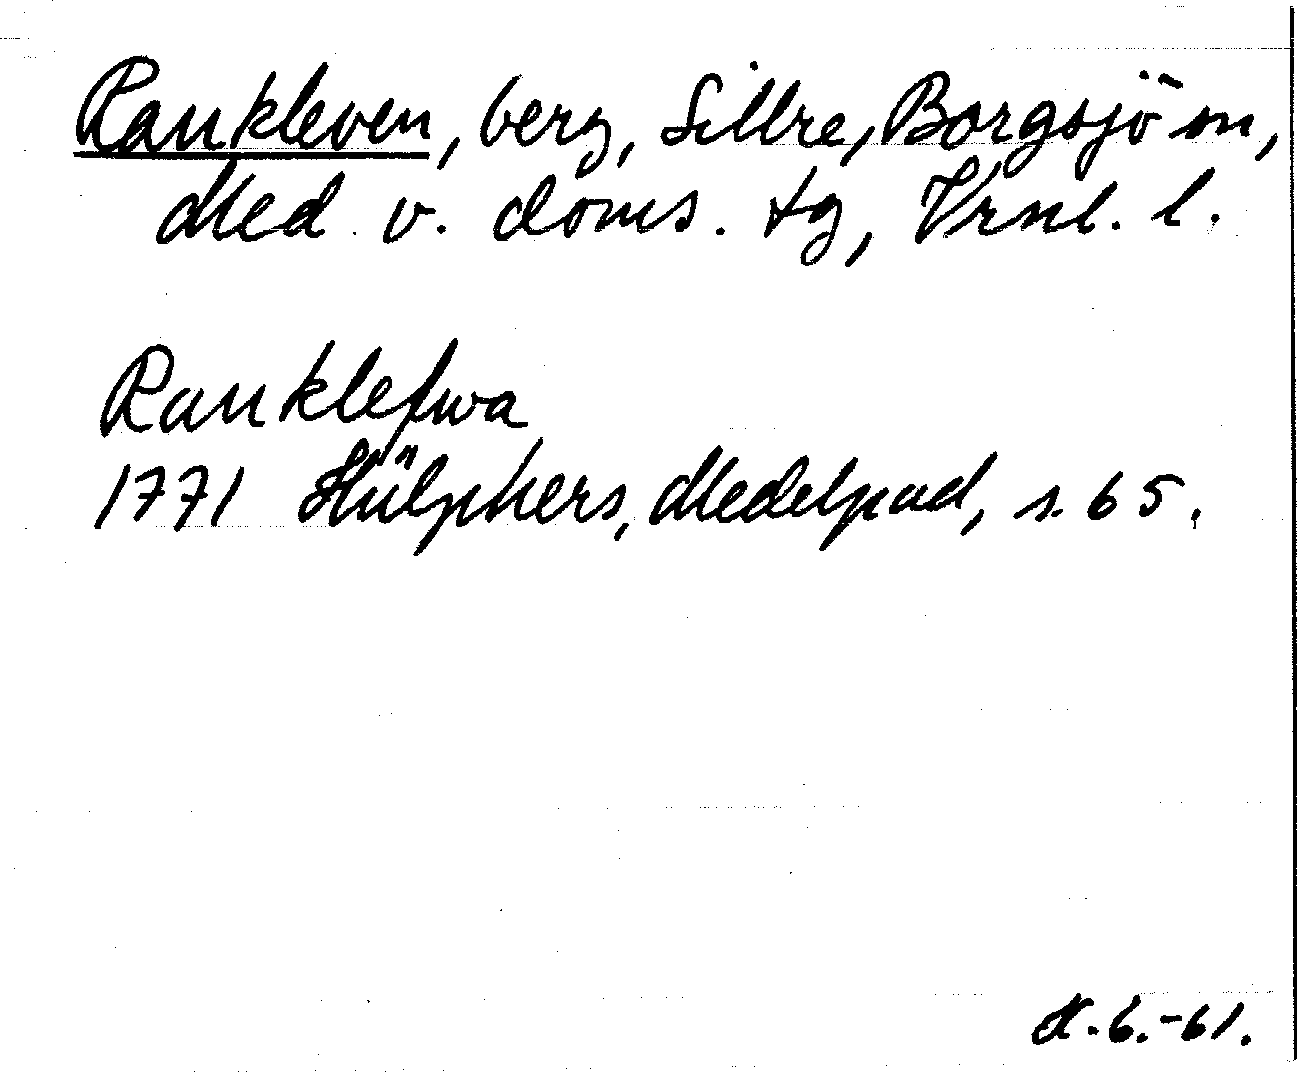 Rankleven, berg, Sillre, Borgsjö sn,
Med v. doms. tg, Vrnl. l.
Ranklefwa
1771 Hülphers, Medelpad, s. 65.
H. 6.-61.